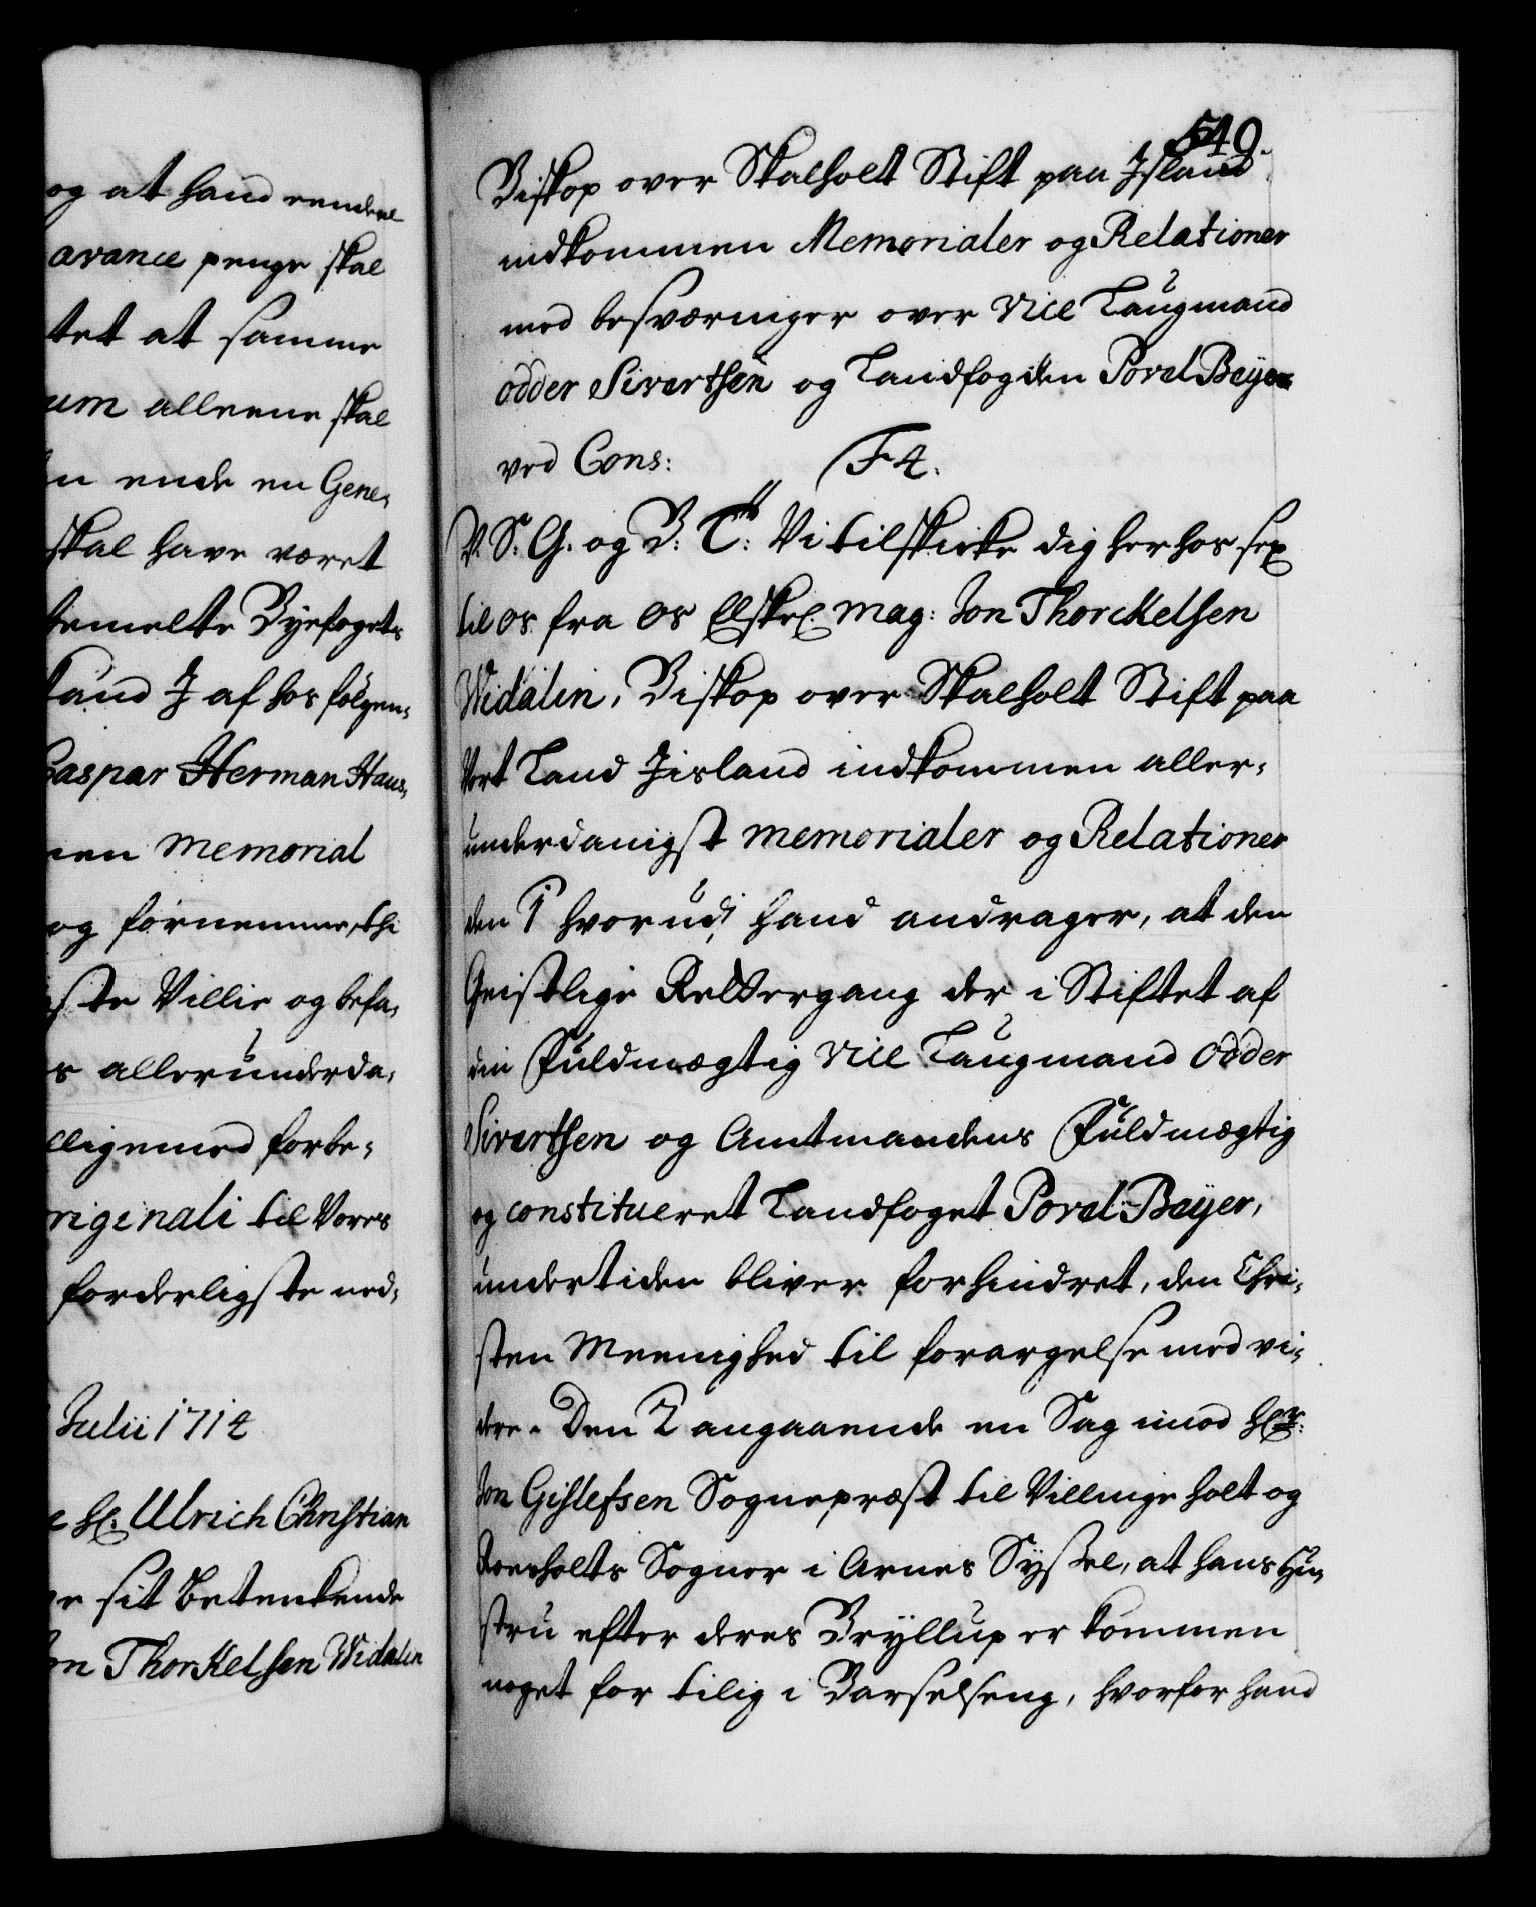 og at hand
avance penge skal
tet at samme
um alleene skal
n ende en Gene,
skal have været
bemelte Byefogets
af hos følgen,
Caspar Herman Haus,
nen Memorial
og fornemmer, thi
ste Villie og befa,
s allerunderda,
lligemed forbe,
riginali til Vores
forderligste ned,
Julii 1714
e hl. Ulrich Christian
er sit Betenkende
on Thorkelsen Widalin
540.
Biskop over Skalholt Stift paa Island
indkommen Memorialer og Relationer
med besværinger over Vice Laugmand
Odder Sivertsen og Landfogden Povel Beyer
ved Cons: F4.
V. S. G. og B: T: Vi tilskicke dig herhos sex
til os fra os Elskel. Mag: Jon Thorckelsen
Widalin, Biskop over Skalholt Stift paa
Vort Land Jisland indkommen aller,
underdanigst memorialer og Relationer
den 1 hvorudj hand andrager, at den
Geistlige Rettergang der i Stiftet af
din Fuldmægtig Vice Laugmand Odder
Sivertsen og Amtmandens Fuldmægtig
og constitueret Landfoget Povel Beyer,
undertiden bliver forhindret, den Chri,
sten Meenighed til forargelse med vi,
dere. Den 2 angaaende en Sag imod Hr:
Jon Gislefsen Sognepræst til Villingeholt og
Sogner i Arnes Syssel, at hans Hu,
stru efter deres Bryllup er kommen
noget for tilig i Barselseng, hvorfor hand